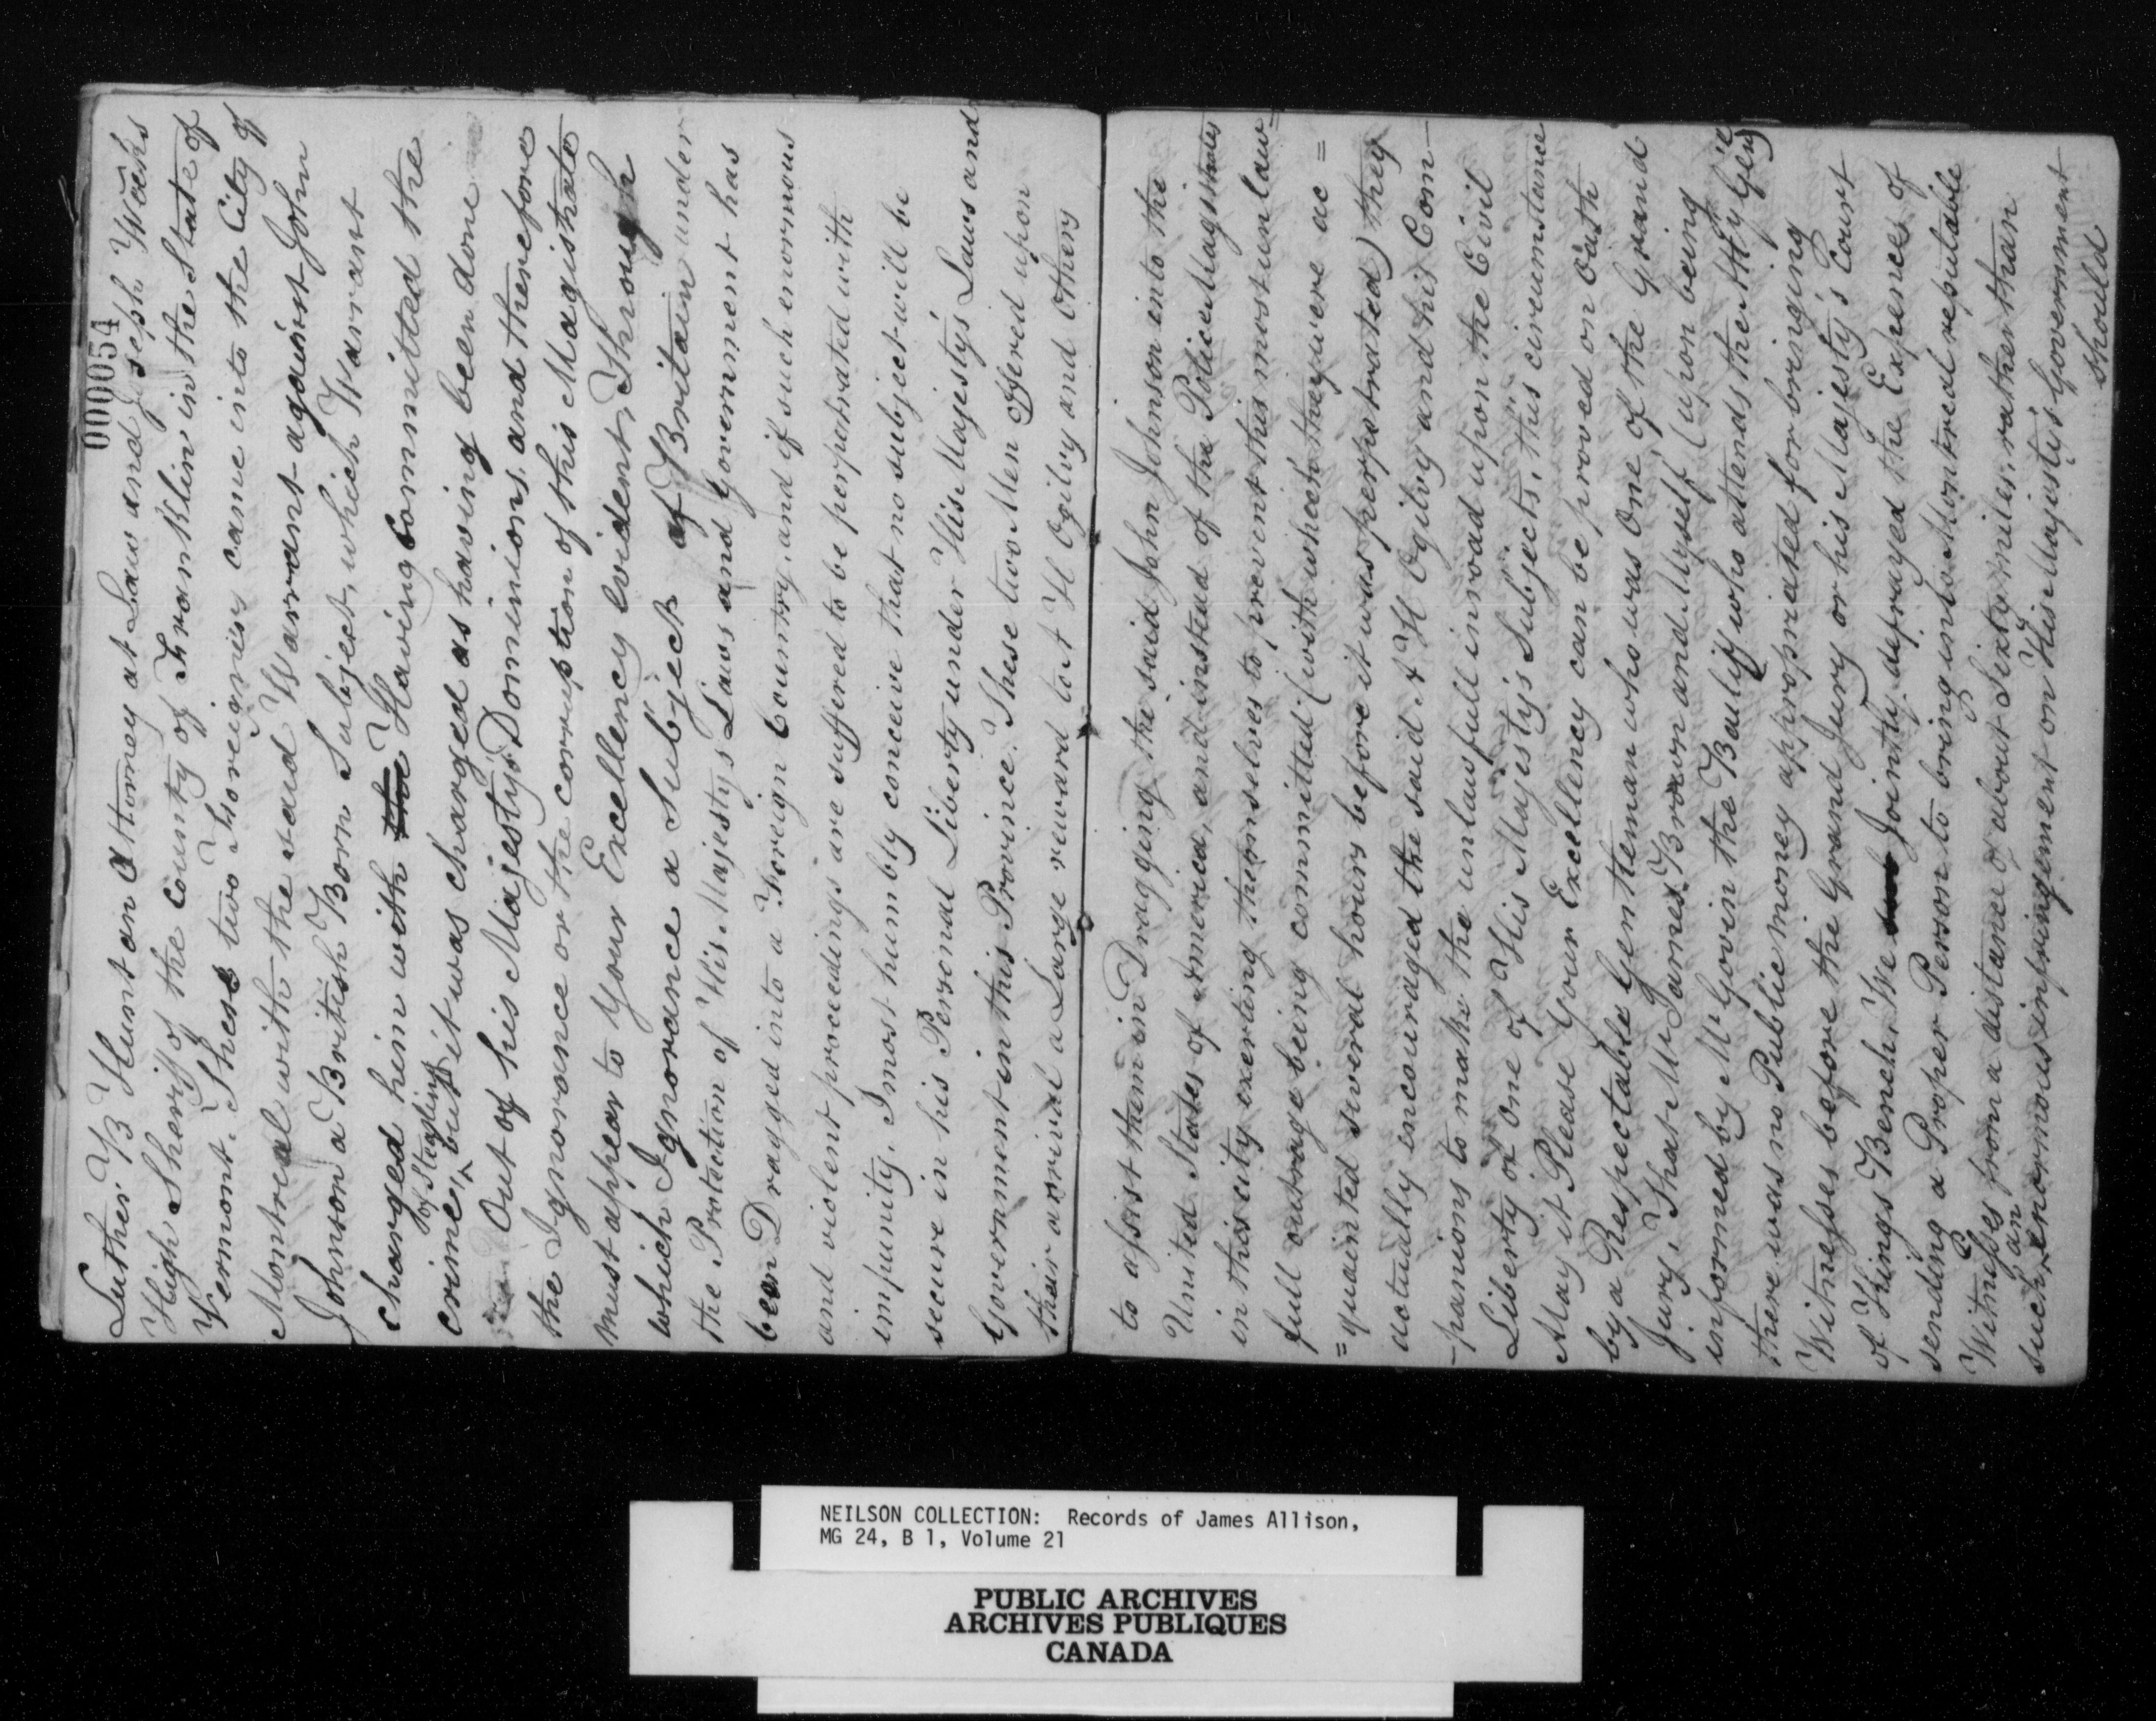 000054
Luther B Hunt an Attorney at Law and Joseph Weeks
High Sheriff of the County of Franklin in the State of
Vermont. These two Foreigners came into the City of
Montreal with the said Warrant against John
Johnson a British Born Subject, which Warrant
charged him with the Having Committed the
crime, of Stealing but it was charged as having been done
Out of his Majesty's Dominions, and therefore
the Ignorance or the corruption of this Magistrate
must appear to Your Excellency evident, Through
which Ignorance a Subject of Britain under
the Protection of His Majestys Laws and Government has
been Dragged into a Foreign Country, and if such enormous
and violent proceedings are suffered to be perpetrated with
impunity, I most humbly conceive that no subject will be
secure in his Personal Liberty under His Majesty's Laws and
Government in this Province. These two Men Offered upon
their arrival a Large reward to A H Ogilvy and Others
to assist them in Dragging the said John Johnson into the
United States of America, and instead of the Police Magistrates
in this city exerting themselves to prevent this most unlaw=
full outrage being committed (with which they were ac =
= quainted several hours before it was perpetrated) they
actually encouraged the said A H Ogilvy and his Com-
-panions to make the unlawfull inroad upon the Civil
Liberty of One of His Majesty's Subjects, this circumstance
May it Please Your Excellency can be proved on Oath
by a Respectable Gentleman who was One of the Grand
Jury, That Mr James Brown and Myself (upon being
informed by Mc Govin the Bailiff who attends the Atty Genl)
there was no Public money appropriated for bringing
Witnesses before the Grand Jury or his Majesty's Court
of Kings Bench, We Jointly defrayed the Expences of
sending a Proper Person to bring into Montreal reputable
Witnesses from a distance of about Sixty miles, rather than
such an enormous infringement on His Majesty's Government
should
NEILSON COLLECTION: Records of James Allison,
MG 24, B 1, Volume 21
PUBLIC ARCHIVES
ARCHIVES PUBLIQUES
CANADA